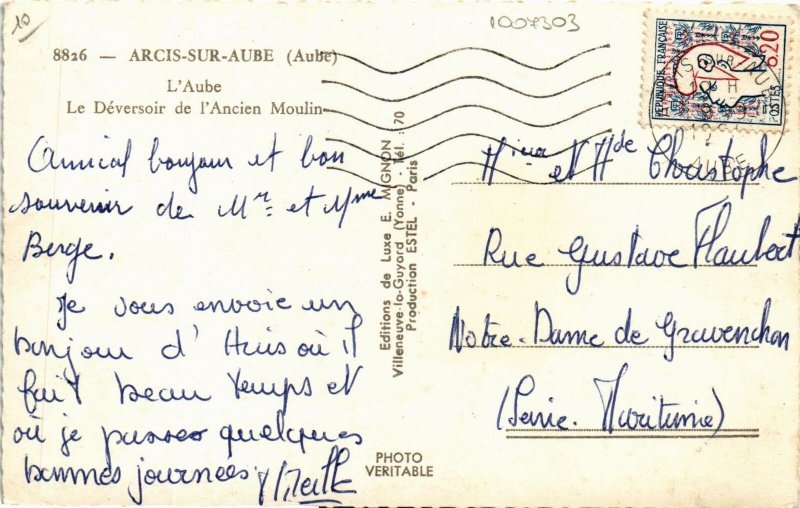 10
1007303
8826 — ARCIS-SUR-AUBE (Aube)
L'Aube
Le Déversoir de l'Ancien Moulin
Amical bonjour et bon
souvenir de Mr et Mme
Berge.
Je vous envoie un
bonjour d'Arcis où il
fait beau temps et
où je passe quelques
bonnes journées
Editions de Luxe E. MIGNON
Villeneuve-la-Guyard (Yonne) - Tél. : 70
Production ESTEL - Paris
PHOTO
VERITABLE
REPUBLIQUE FRANÇAISE
0,20
POSTES
AUBE
et Christophe
Rue Gustave Flaubert
Notre-Dame de Gravenchon
(Seine-Maritime)